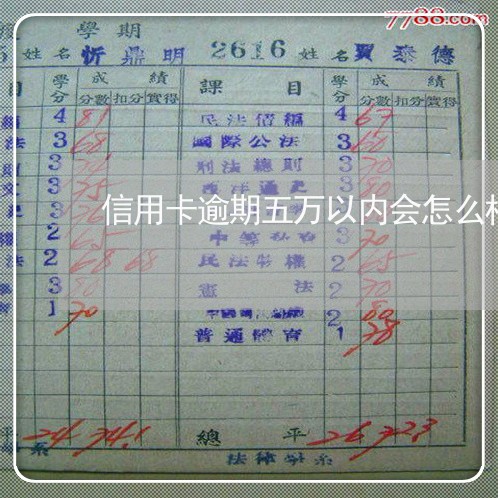 7788.com
學期
姓名 忻鼎明 2616 姓名 賈泰德
目 學分 成績 課目 學分 成績
分數 扣分 實得 分數 扣分 實得
4 81 民法債編 4 67
法 3 68 國際公法 3 60
3 刑法總則 3 70
文 3 75 西洋通史 3 80
信用卡逾期五万以内会怎么样
2 65 3 70
法 2 68 68 民法物權 2 65
3 80 憲法 2 70
1 70 2 80
普通體育 1 78
平 24 74.1 總平 26 72.3
系 法律學系